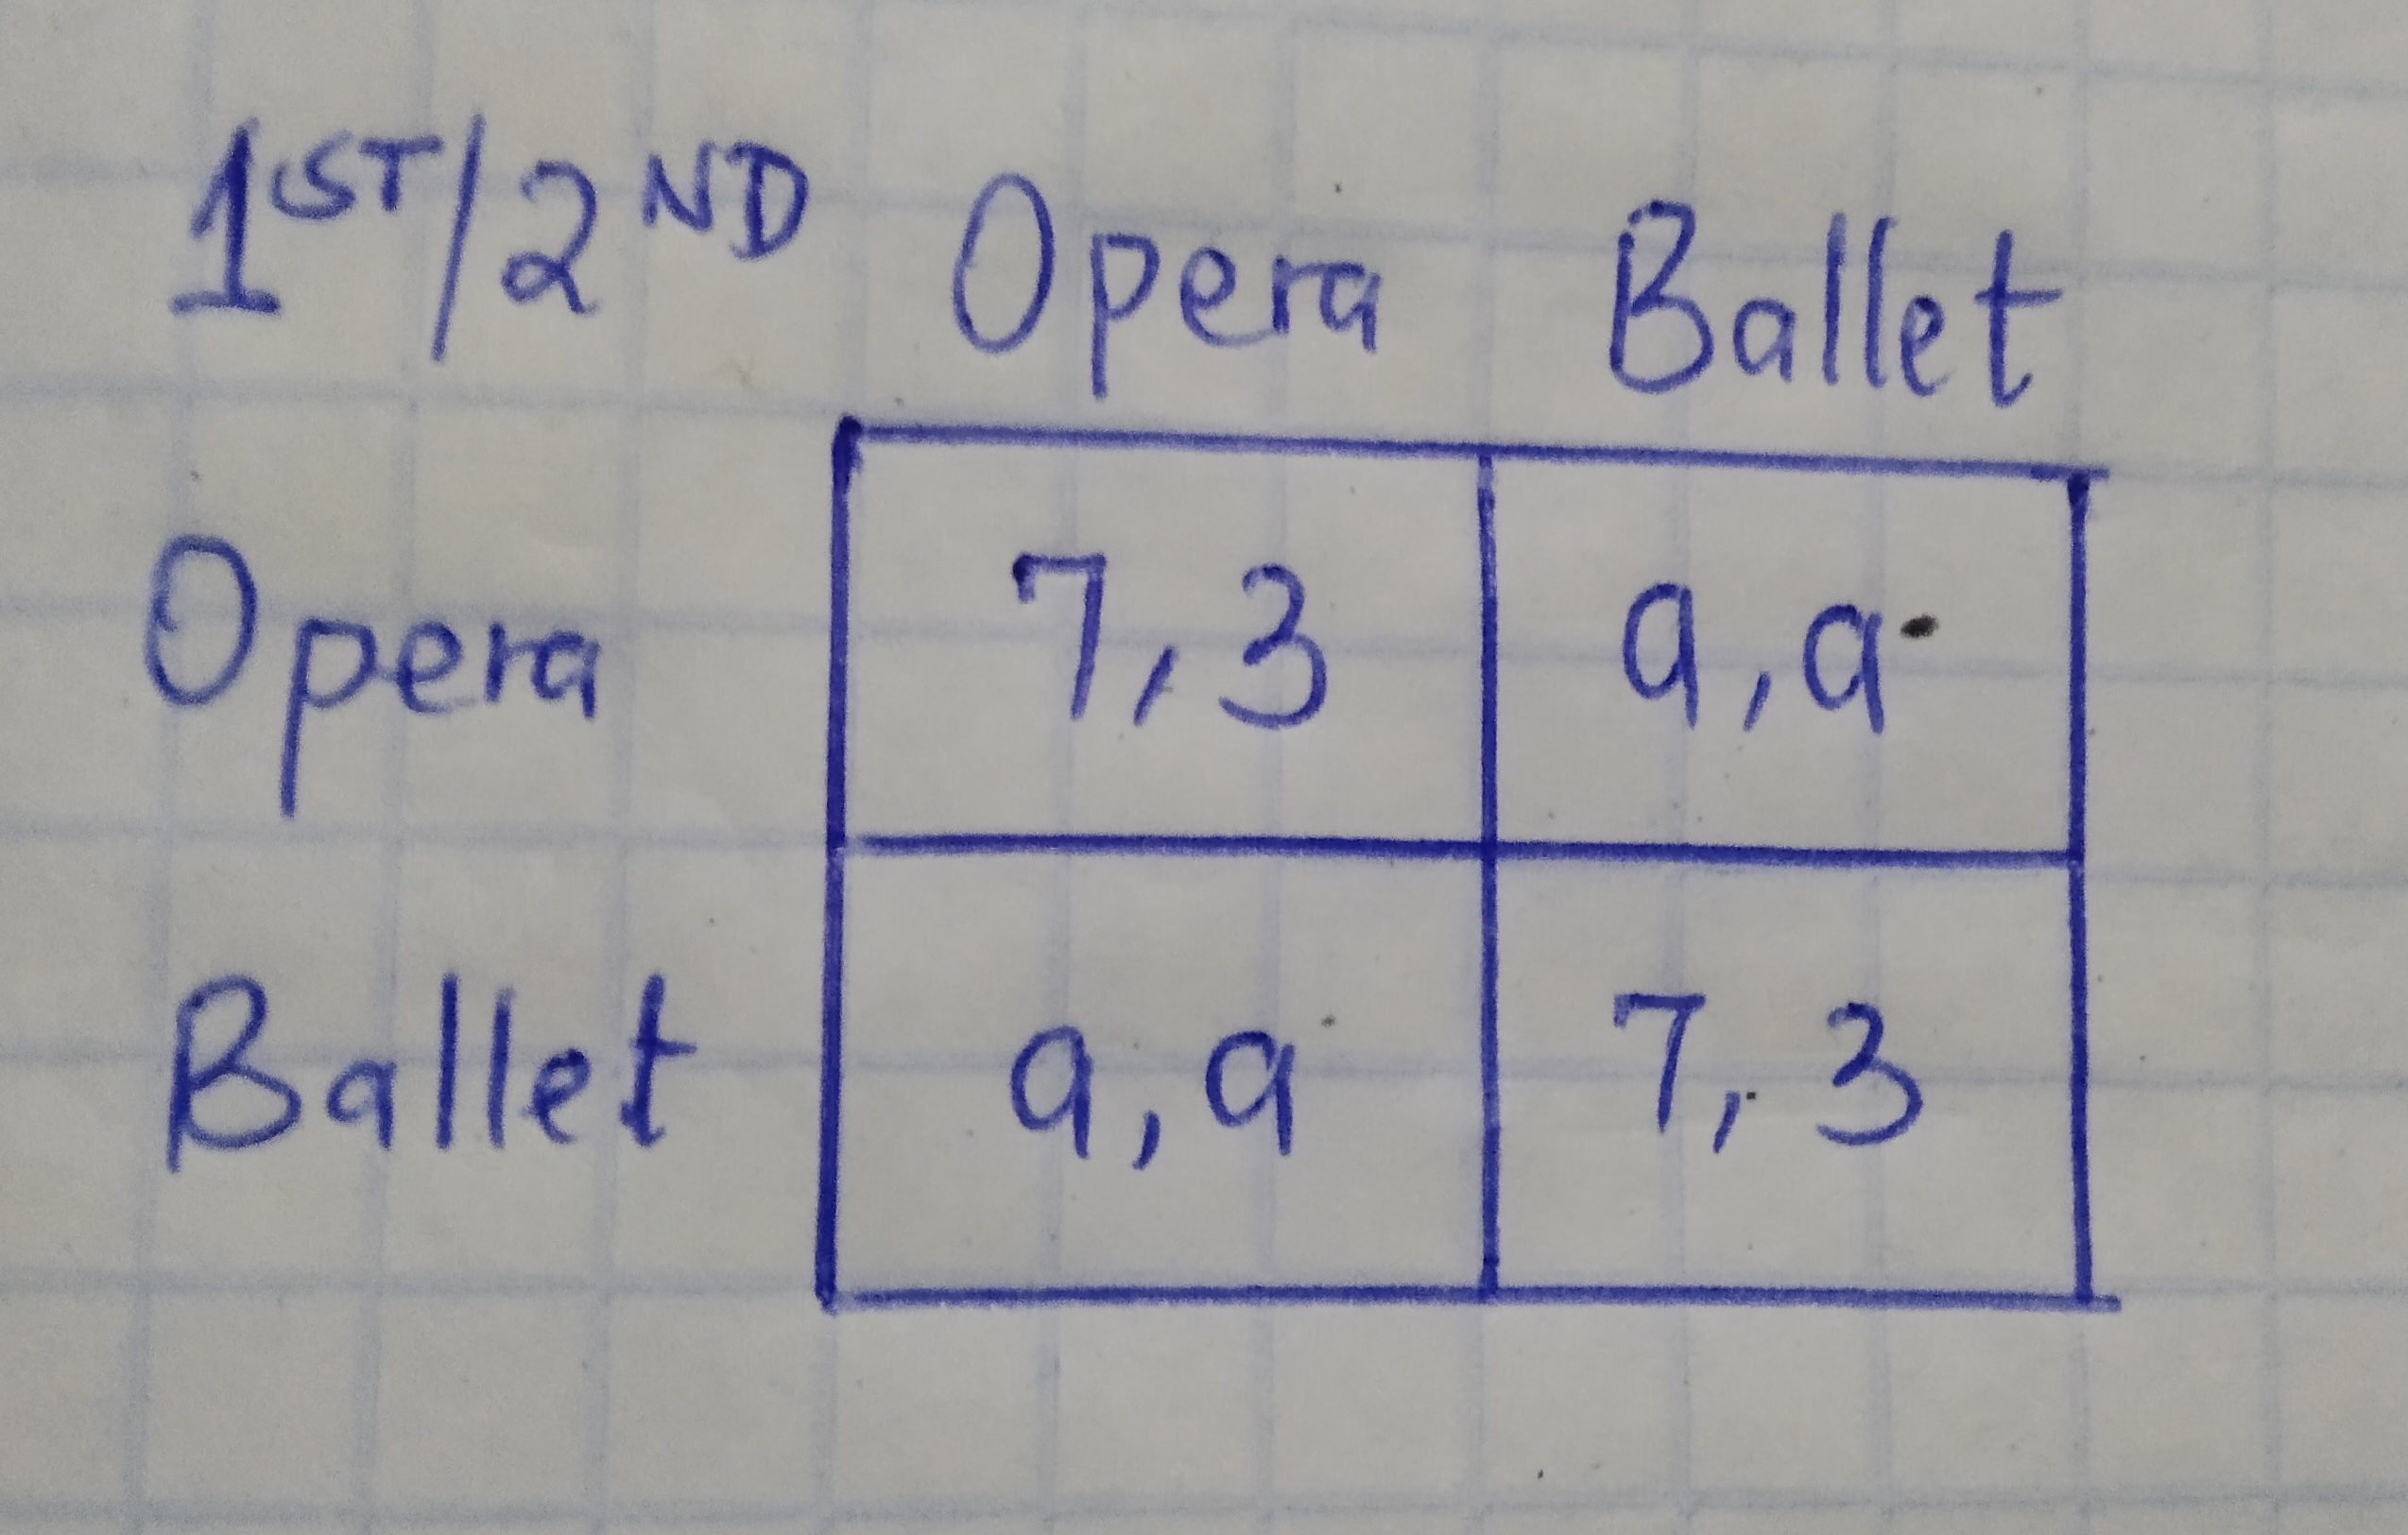 1ST/2ND Opera Ballet
Opera 7,3 a,a
Ballet a,a 7,3